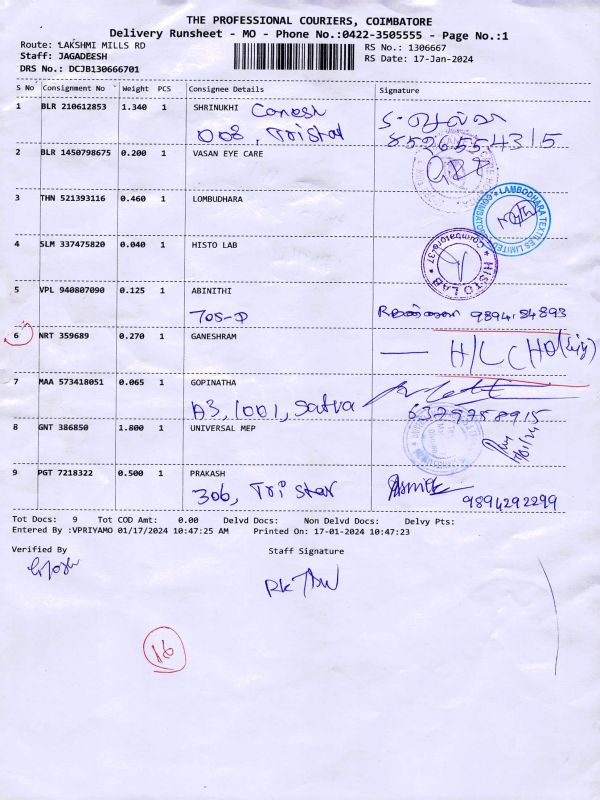 THE PROFESSIONAL COURIERS, COIMBATORE
Delivery Runsheet - MO - Phone No.:0422-3505555 - Page No.:1
Route: LAKSHMI MILLS RD RS No.: 1306667
Staff: JAGADEESH RS Date: 17-Jan-2024
DRS No.: DCJB130666701
S No Consignment No Weight PCS Consignee Details Signature
1 BLR 210612853 1.340 1 SHRINUKHI Canesh
008, Tristar 8526554315
2 BLR 1450798675 0.200 1 VASAN EYE CARE
3 THN 521393116 0.460 1 LOMBUDHARA
LAMBODHARA TEXTILES LIMITED * COIMBATORE *
4 SLM 337475820 0.040 1 HISTO LAB
* HISTO LAB * Coimbatore-37
5 VPL 940807090 0.125 1 ABINITHI
705-D 9894154893
6 NRT 359689 0.270 1 GANESHRAM — H/L (Holiday)
7 MAA 573418051 0.065 1 GOPINATHA
A3, 1001, Satva 6379758915
8 GNT 386850 1.800 1 UNIVERSAL MEP
9 PGT 7218322 0.500 1 PRAKASH
306, Tri star 9894292299
Tot Docs: 9 Tot COD Amt: 0.00 Delvd Docs: Non Delvd Docs: Delvy Pts:
Entered By :VPRIYAMO 01/17/2024 10:47:25 AM Printed On: 17-01-2024 10:47:23
Verified By Staff Signature
16